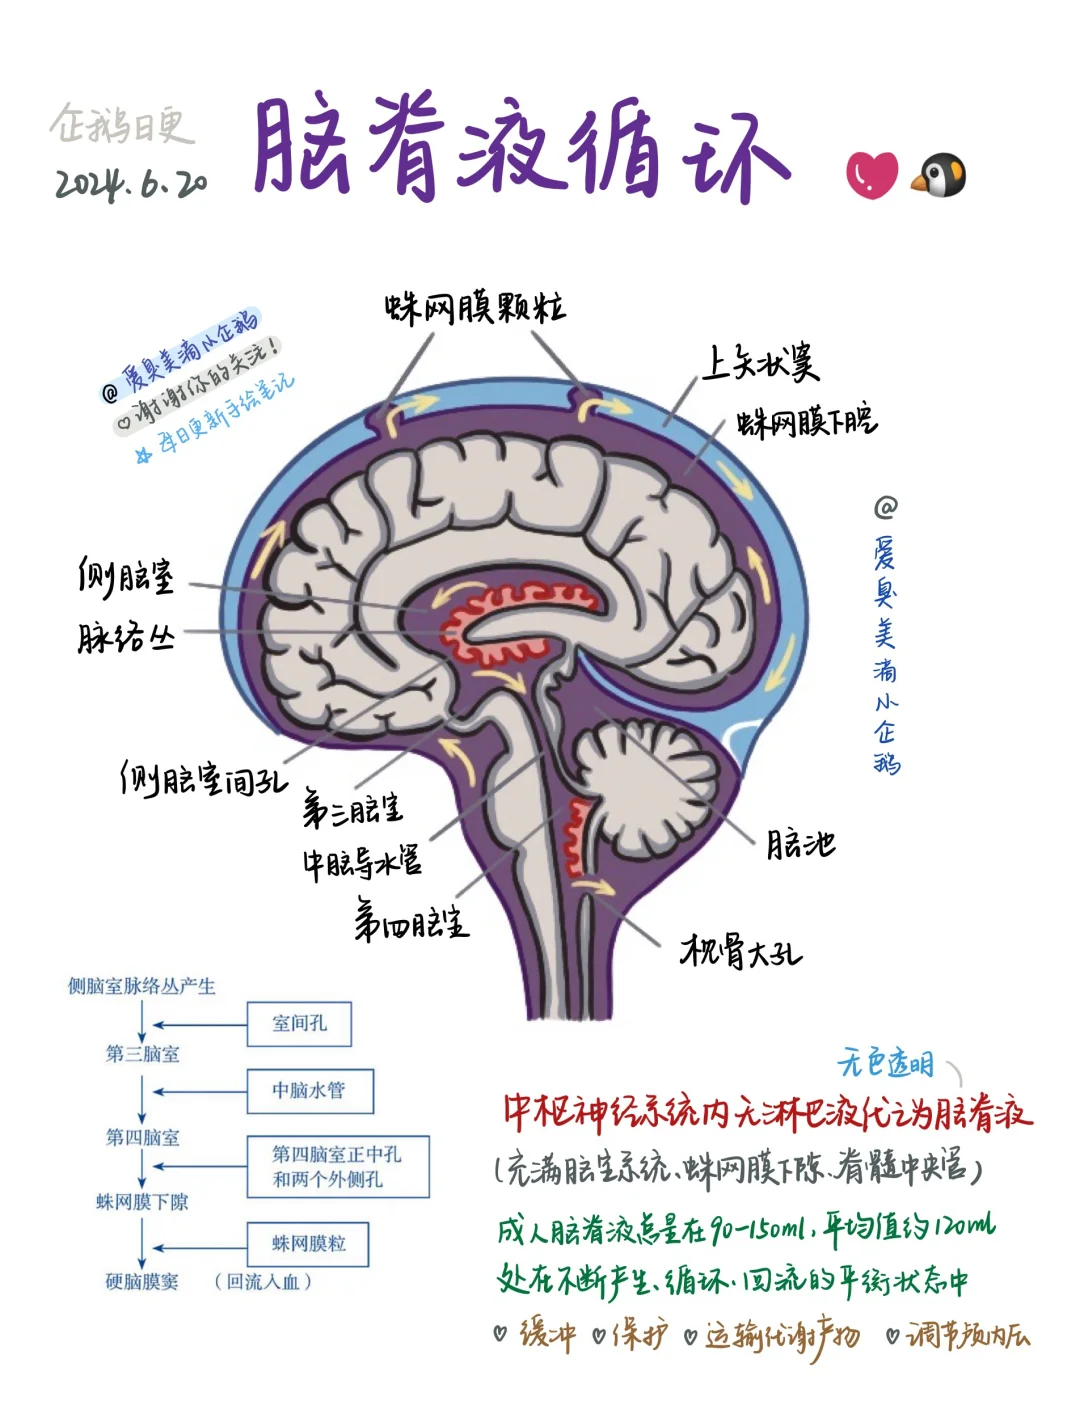 企鹅日更
2024.6.20
脑脊液循环
@爱臭美滴小企鹅
♡谢谢你的关注！
☆每日更新手绘笔记
蛛网膜颗粒
上矢状窦
蛛网膜下腔
@爱臭美滴小企鹅
侧脑室
脉络丛
侧脑室间孔
第三脑室
中脑导水管
第四脑室
脑池
枕骨大孔
侧脑室脉络丛产生
室间孔
第三脑室
中脑水管
第四脑室
第四脑室正中孔
和两个外侧孔
蛛网膜下隙
蛛网膜粒
硬脑膜窦 （回流入血）
无色透明
中枢神经系统内无淋巴液代之为脑脊液
(充满脑室系统、蛛网膜下隙、脊髓中央管)
成人脑脊液总量在90-150ml，平均值约120ml
处在不断产生、循环、回流的平衡状态中
♡缓冲 ♡保护 ♡运输代谢产物 ♡调节颅内压